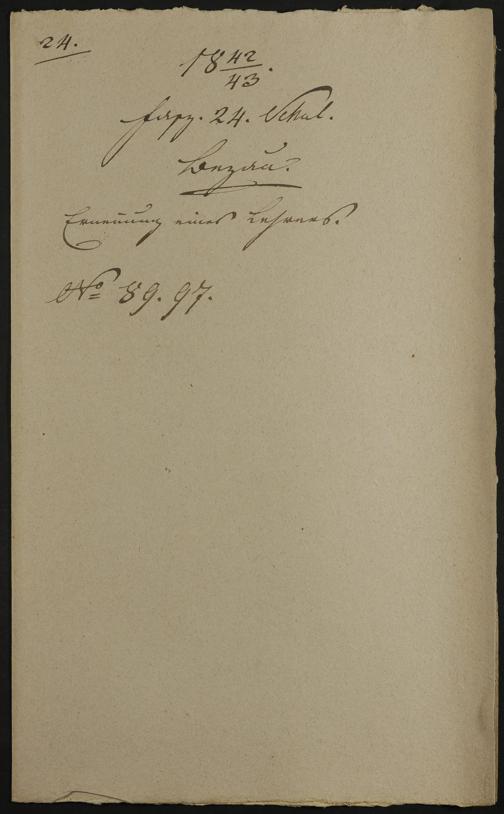 24.
18 42/43.
Fasz. 24. Schul.
Bezau.
Ernennung eines Lehrers.
No 89. 97.